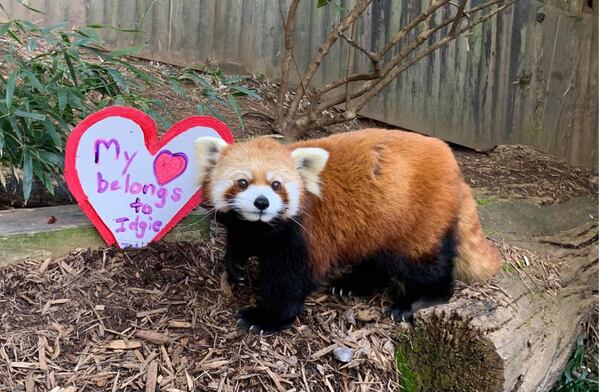 My ❤
belongs
to
Idgie